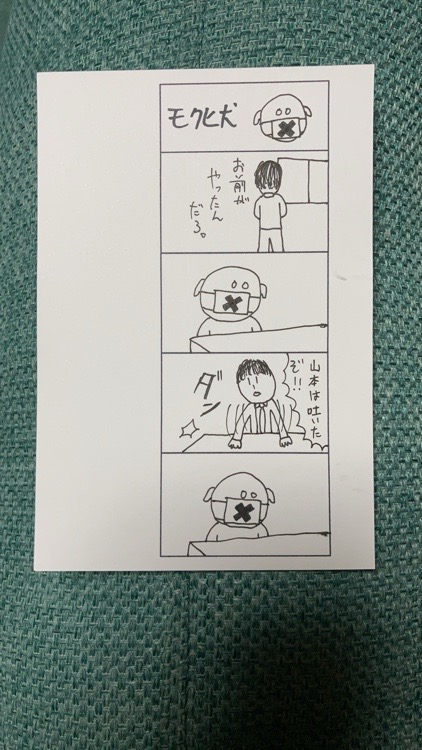 モクヒ犬
お前が
やったん
だろ。
山本は吐いた
ぞ!!
ダン